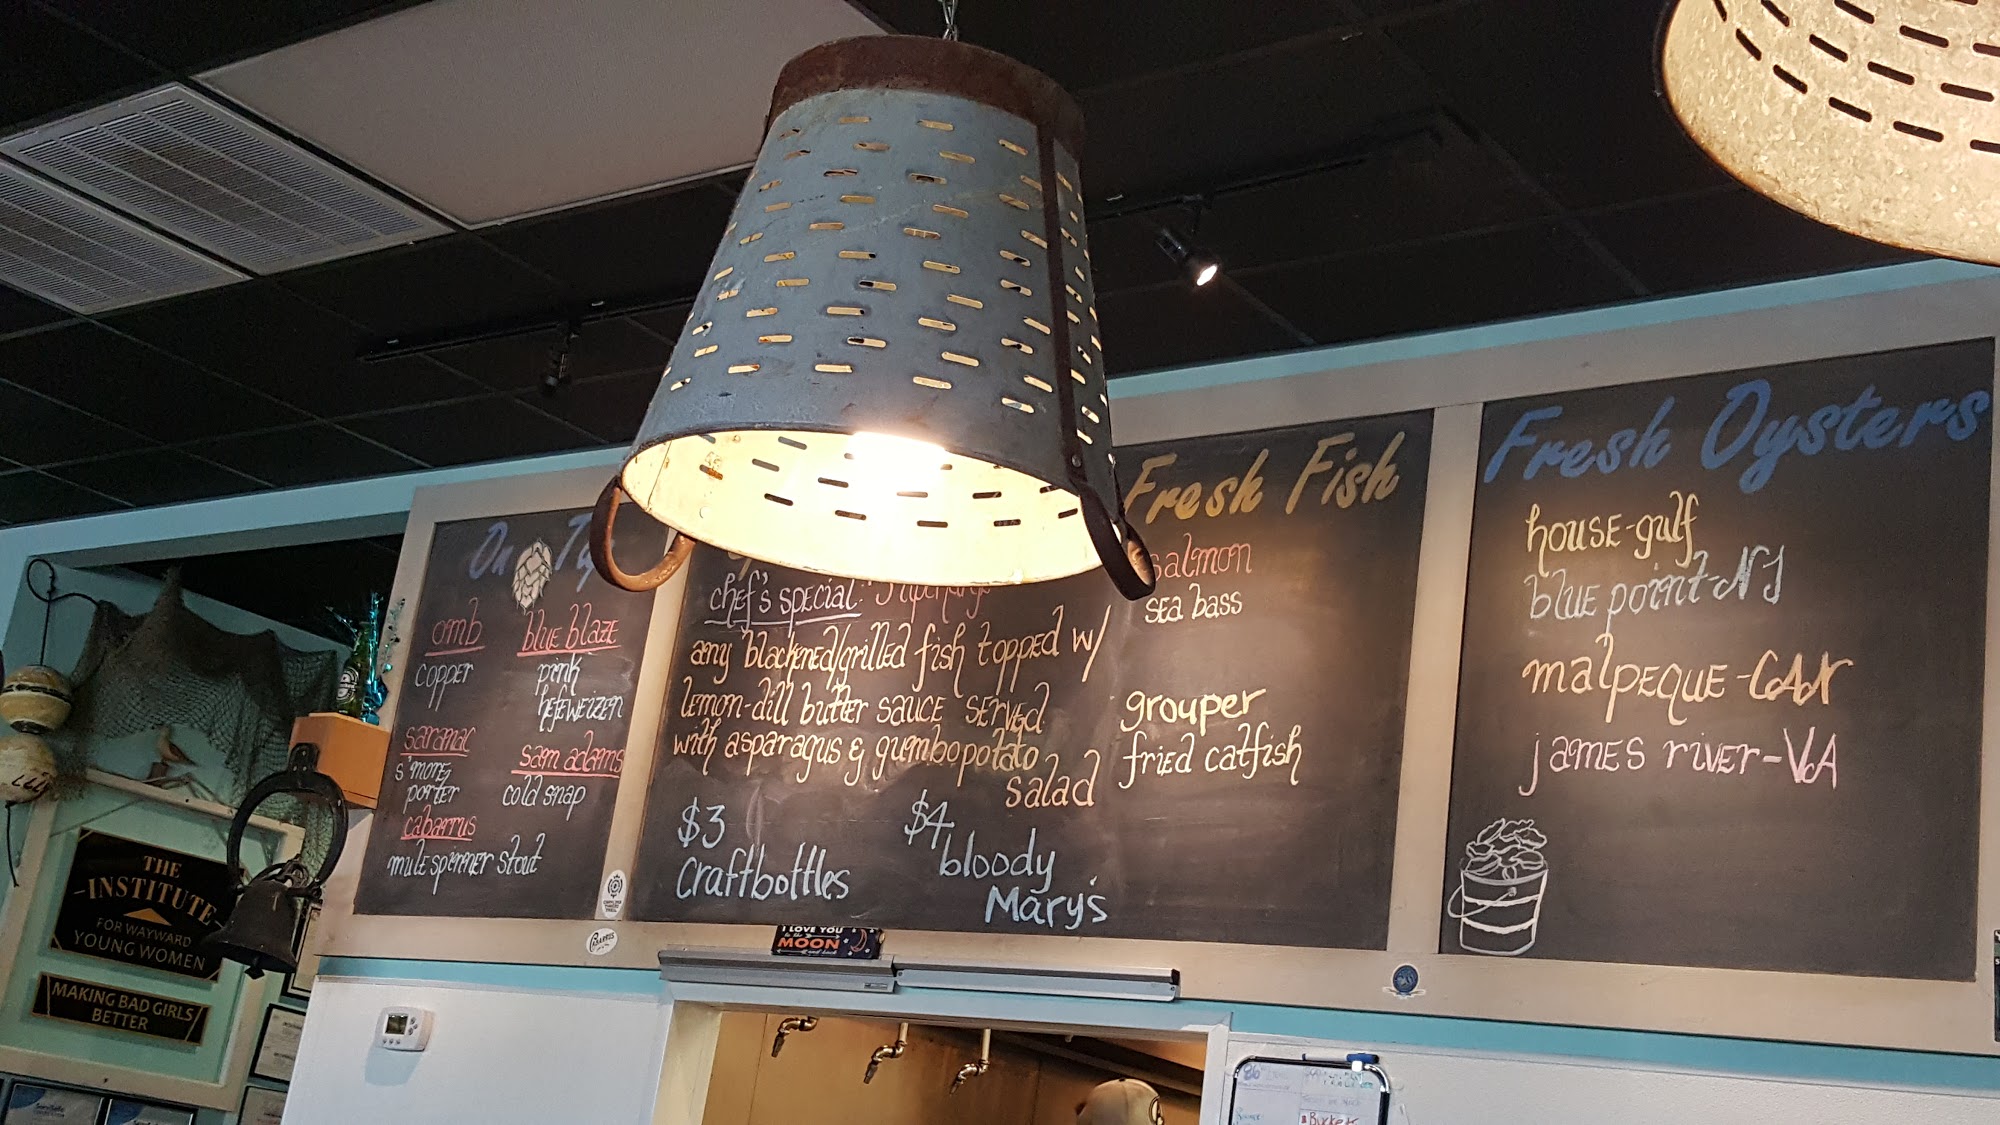 On Tap
omb
copper
saranac
s'mores
porter
cabarrus
mule spinner stout
blue blaze
pink
hefeweizen
sam adams
cold snap
chef's special:
any blackened/grilled fish topped w/
lemon-dill butter sauce served
with asparagus & gumbo potato
salad
$3
craft bottles
$4
bloody
Mary's
Fresh Fish
salmon
sea bass
grouper
fried catfish
Fresh Oysters
house-gulf
blue point-NJ
malpeque-CAN
james river-VA
THE
INSTITUTE
FOR WAYWARD
YOUNG WOMEN
MAKING BAD GIRLS
BETTER
I LOVE YOU
to the
MOON
and back
86
Buckets